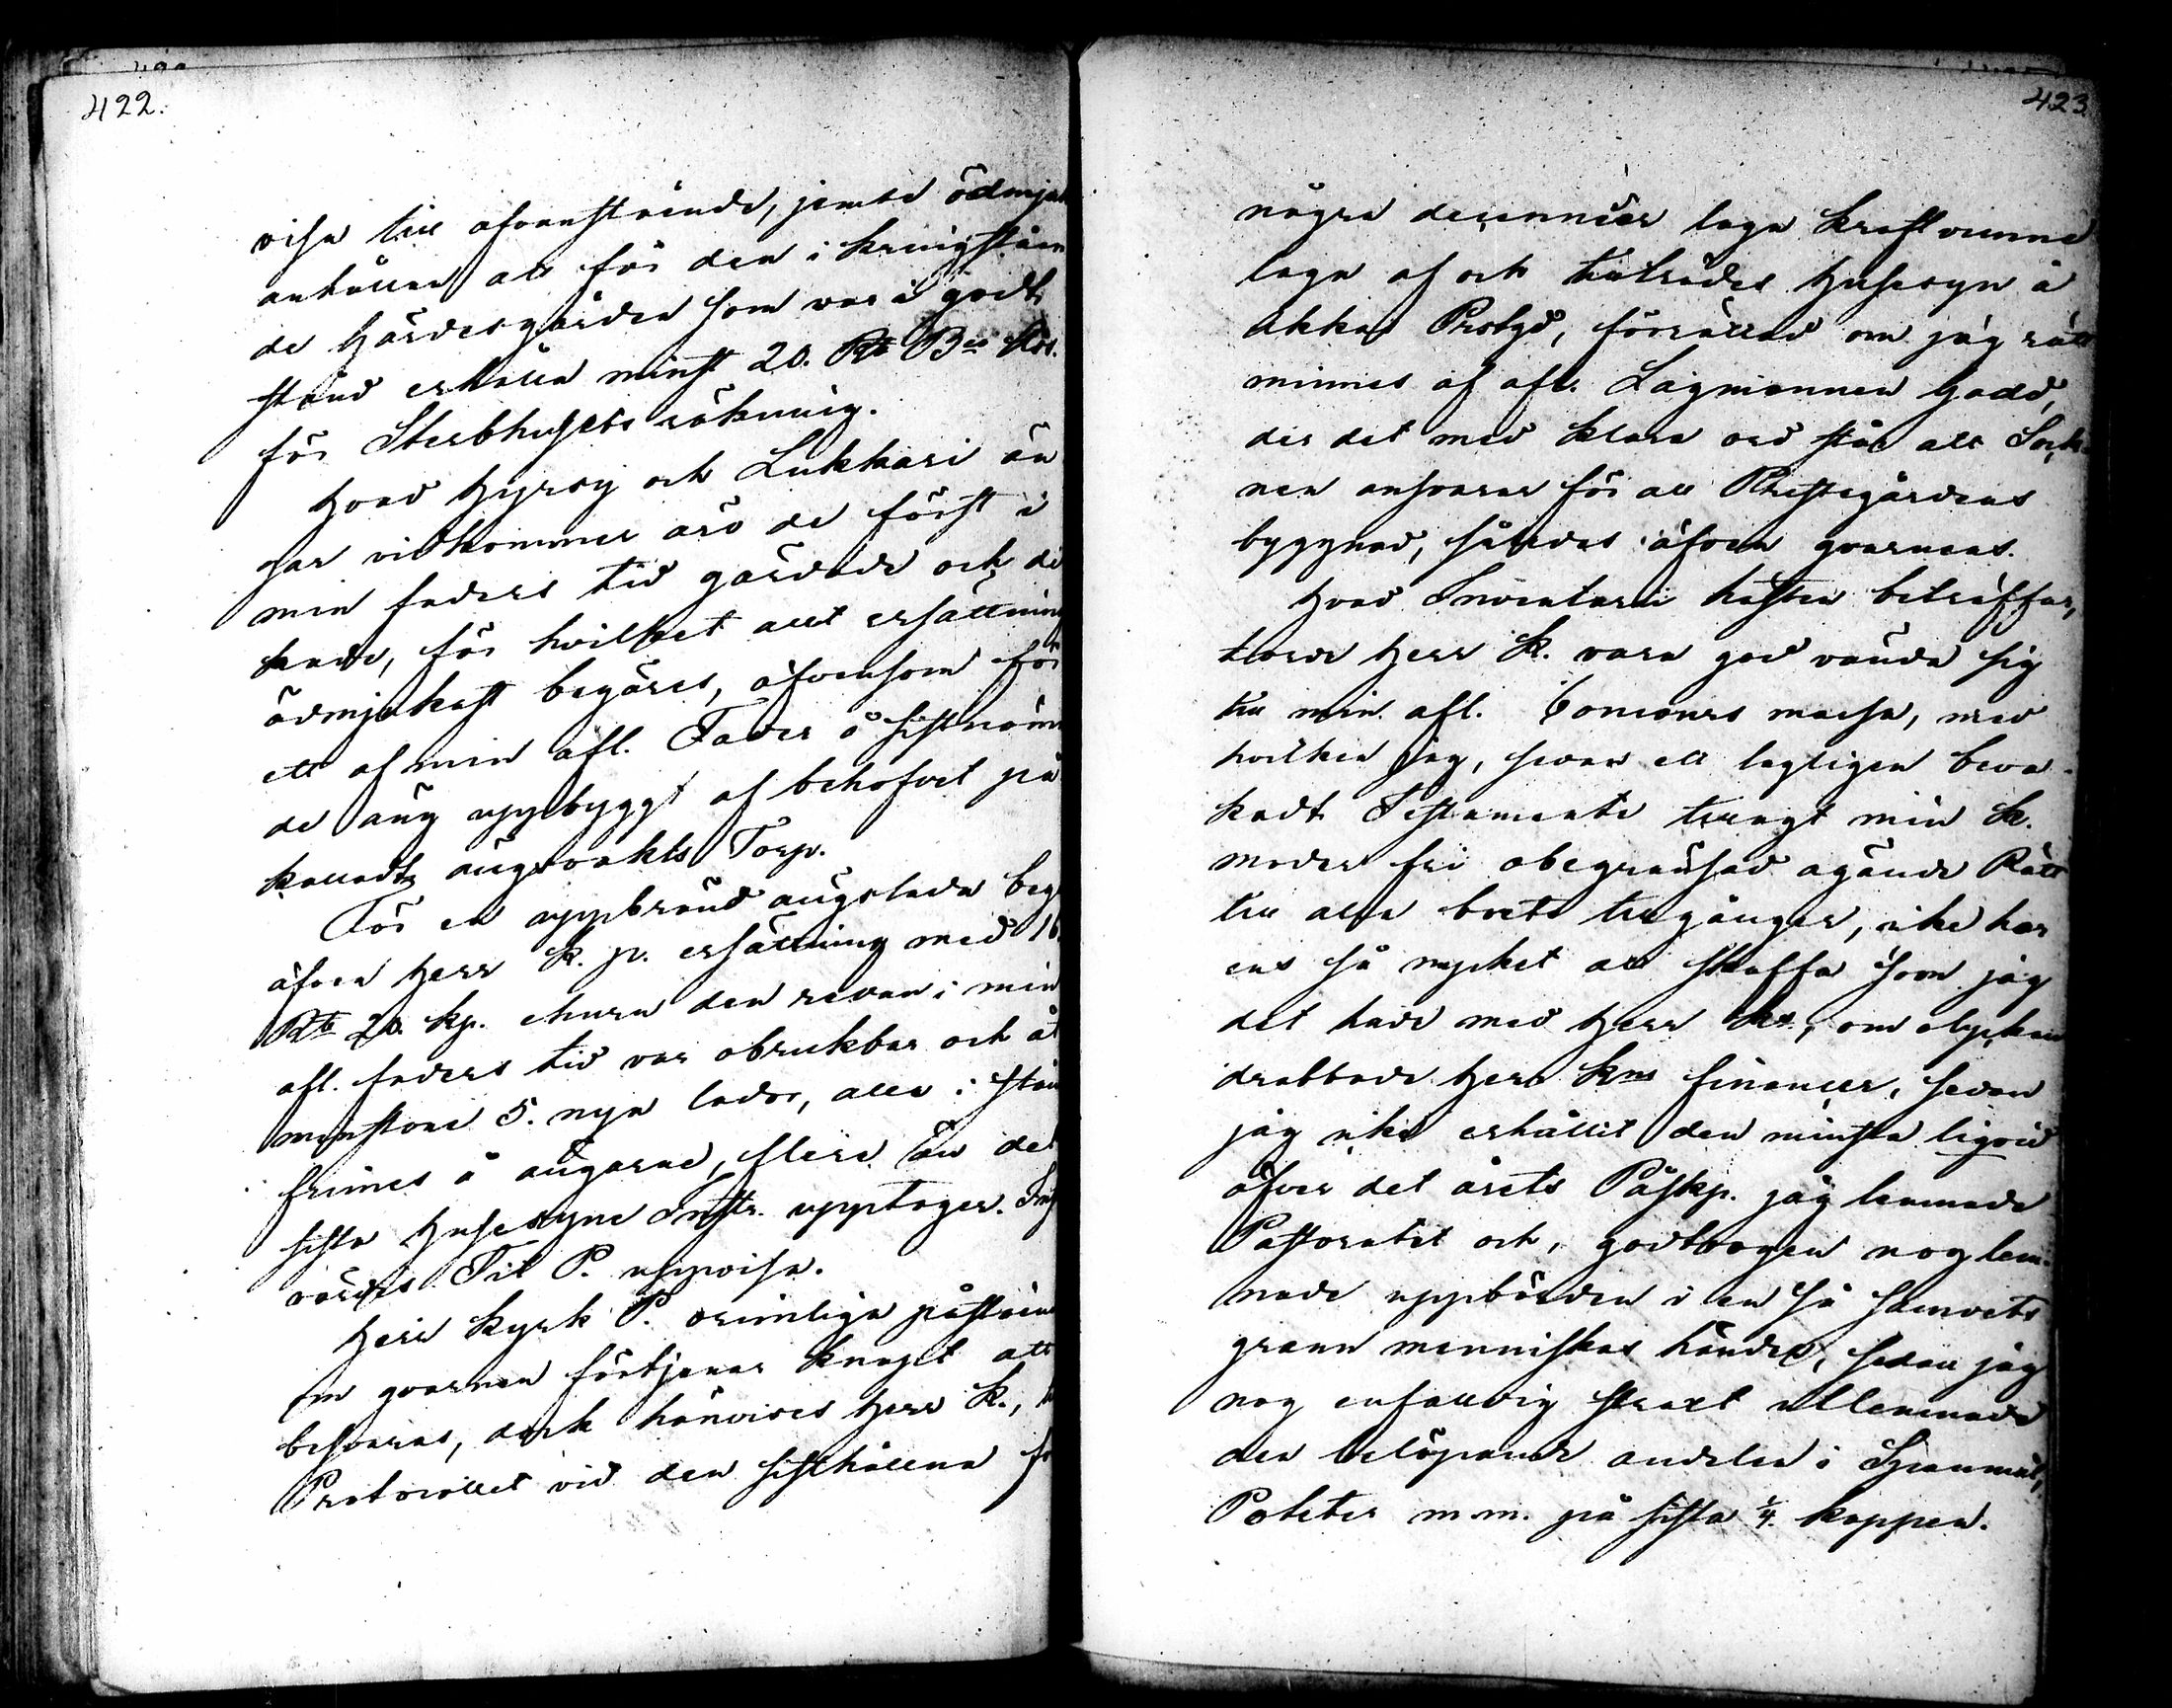 422.
visa till ofvanstående, jemte ödmjuk
anhållan att för den i kringstån
de Gärdesgården som var i godt
stånd erhålla minst 20. Rb Bco Ass.
för Sterbhusets räkning.
Hvad Hyrsy och Lukkari än
gar vidkommer äro de först i
min faders tid gärdade och di
kade, för hvilket allt ersättning
ödmjukast begäres, äfvensom för
ett af min afl. Fader å sistnäm
de äng uppbyggt af behofvet på
kalladt ängsvakts Torp.
För en uppbränd ängslada beg
äfven Herr K. p. ersättning med 16
Rb 20. kp. ehuru den redan i min
afl. faders tid var obrukbar och åt
minstone 5. nya lador, alla i stån
finnes å ängarne, flere än det
sista Husesyns Instr. upptager.
värdes Tit P. uppvisa.
Herr Kyrk P. orimliga påståen
om qvarnen förtjenar knapt att
besvaras, dock hänvises Herr K.,
Protocollet vid den sisthållna
423.
några decennier laga kraftvunne
laga af och tillträdes Husesyn å
Akkas Prstgd, förrättad om jag rätt
minnes af afl. Lagmannen Gadd,
der det med klara ord står att Sock-
nen ansvarar för all Prestegårdens
byggnad, således äfven qvarnens.
Hvad Inventarii hästen beträffar,
torde Herr K. vara god vända sig
till min afl. Concours massa, med
hvilken jag, sedan ett lagligen beva-
kadt Testamente tillagt min K.
moder fri obegränsad ägande Rätt
till alla boets tillgångar, icke har
ens så mycket att skaffa som jag
det hade med Herr Kr, om olyckan
drabbade Herr Kns financer, sedan
jag icke erhållit den minsta liqvid
öfver det årets Påskp. jag lemnade
Pastoratet och, godtrogen nog lem-
nade uppbörden i en så samvets
grann menniskas händer, sedan jag
nog enfaldig straxt utlemnade
den belöpande andelen i Spannmål,
Poteter m.m. på sista 1/4. kappen.